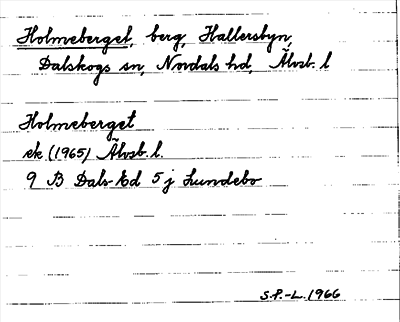 Holmeberget, berg, Hallersbyn,
Dalskogs sn, Nordals hd, Älvsb. l
Holmeberget
ek (1965) Älvsb. l.
9 B Dals-Ed 5 j Lundebo
S.F.-L. 1966